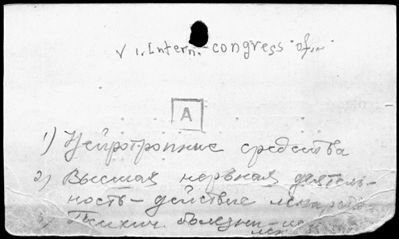 VI. Intern. congress of...
A
1) Нейротропные средства
2) Высшая нервная деятель-
ность - действие
3) Психич. болезни -